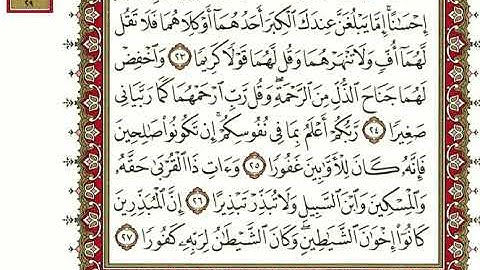 إِحْسَٰنًا ۚ إِمَّا يَبْلُغَنَّ عِندَكَ ٱلْكِبَرَ أَحَدُهُمَآ أَوْ كِلَاهُمَا فَلَا تَقُل
لَّهُمَآ أُفٍّ وَلَا تَنْهَرْهُمَا وَقُل لَّهُمَا قَوْلًا كَرِيمًا ٢٣ وَٱخْفِضْ
لَهُمَا جَنَاحَ ٱلذُّلِّ مِنَ ٱلرَّحْمَةِ وَقُل رَّبِّ ٱرْحَمْهُمَا كَمَا رَبَّيَانِى
صَغِيرًا ٢٤ رَّبُّكُمْ أَعْلَمُ بِمَا فِى نُفُوسِكُمْ ۚ إِن تَكُونُوا۟ صَٰلِحِينَ
فَإِنَّهُۥ كَانَ لِلْأَوَّٰبِينَ غَفُورًا ٢٥ وَءَاتِ ذَا ٱلْقُرْبَىٰ حَقَّهُۥ
وَٱلْمِسْكِينَ وَٱبْنَ ٱلسَّبِيلِ وَلَا تُبَذِّرْ تَبْذِيرًا ٢٦ إِنَّ ٱلْمُبَذِّرِينَ
كَانُوٓا۟ إِخْوَٰنَ ٱلشَّيَٰطِينِ ۖ وَكَانَ ٱلشَّيْطَٰنُ لِرَبِّهِۦ كَفُورًا ٢٧